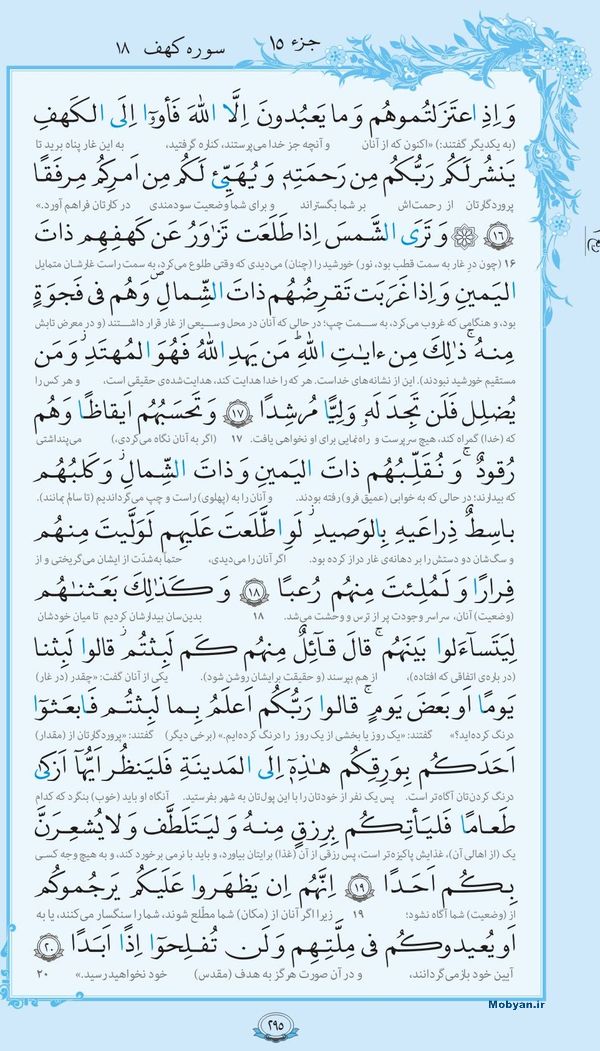 جزء ۱۵
سوره کهف ۱۸
وَ اِذِ اعتَزَلتُموهُم وَ ما یَعبُدونَ اِلَّا اللّٰهَ فَأوۥٓا اِلَی الکَهفِ
(به یکدیگر گفتند:) «اکنون که از آنان و آنچه جز خدا می‌پرستند، کناره گرفتید، به این غار پناه برید تا
یَنشُر لَکُم رَبُّکُم مِن رَحمَتِهٖ وَ یُهَیِّئ لَکُم مِن اَمرِکُم مِرفَقًا
پروردگارتان از رحمت‌اش بر شما بگستراند و برای شما وضعیت سودمندی در کارتان فراهم آورد.»
﴿۱۶﴾ وَ تَرَی الشَّمسَ اِذا طَلَعَت تَزٰوَرُ عَن کَهفِهِم ذاتَ
۱۶ (چون در غار به سمت قطب بود، نور) خورشید را (چنان) می‌دیدی که وقتی طلوع می‌کرد، به سمت راست غارشان متمایل
الیَمینِ وَ اِذا غَرَبَت تَقرِضُهُم ذاتَ الشِّمالِ وَ هُم فی فَجوَةٍ
بود، و هنگامی که غروب می‌کرد، به سمت چپ؛ در حالی که آنان در محل وسیعی از غار قرار داشتند (و در معرض تابش
مِنهُ ۚ ذٰلِکَ مِن ءایٰتِ اللّٰهِ ۗ مَن یَهدِ اللّٰهُ فَهُوَ المُهتَدِ ۖ وَ مَن
مستقیم خورشید نبودند). این از نشانه‌های خداست. هر که را خدا هدایت کند، هدایت‌شده‌ی حقیقی است، و هر کس را
یُضلِل فَلَن تَجِدَ لَهٗ وَلِیًّا مُرشِدًا ﴿۱۷﴾ وَ تَحسَبُهُم اَیقاظًا وَ هُم
که (خدا) گمراه کند، هیچ سرپرست و راه‌نمایی برای او نخواهی یافت. ۱۷ (اگر به آنان نگاه می‌کردی،) می‌پنداشتی
رُقودٌ ۚ وَ نُقَلِّبُهُم ذاتَ الیَمینِ وَ ذاتَ الشِّمالِ ۖ وَ کَلبُهُم
که بیدارند؛ در حالی که به خوابی (عمیق فرو) رفته بودند. و آنان را به (پهلوی) راست و چپ می‌گرداندیم (تا سالم بمانند).
باسِطٌ ذِراعَیهِ بِالوَصیدِ ۚ لَوِ اطَّلَعتَ عَلَیهِم لَوَلَّیتَ مِنهُم
و سگ‌شان دو دستش را بر دهانه‌ی غار دراز کرده بود. اگر آنان را می‌دیدی، حتماً به‌شدّت از ایشان می‌گریختی و از
فِرارًا وَ لَمُلِئتَ مِنهُم رُعبًا ﴿۱۸﴾ وَ کَذٰلِکَ بَعَثنٰهُم
(وضعیت) آنان، سراسر وجودت پر از ترس و وحشت می‌شد. ۱۸ بدین‌سان بیدارشان کردیم تا میان خودشان
لِیَتَسآءَلوا بَینَهُم ۚ قالَ قآئِلٌ مِنهُم کَم لَبِثتُم ۖ قالوا لَبِثنا
(درباره‌ی اتفاقی که افتاده)، از هم بپرسند (و حقیقت برایشان روشن شود). یکی از آنان گفت: «چقدر (در غار)
یَومًا اَو بَعضَ یَومٍ ۚ قالوا رَبُّکُم اَعلَمُ بِما لَبِثتُم فَابعَثوٓا
درنگ کرده‌اید؟» گفتند: «یک روز یا بخشی از یک روز را درنگ کرده‌ایم.» (برخی دیگر) گفتند: «پروردگارتان از (مقدار)
اَحَدَکُم بِوَرِقِکُم هٰذِهٖٓ اِلَی المَدینَةِ فَلیَنظُر اَیُّهآ اَزکیٰ
درنگ کردن‌تان آگاه‌تر است. پس یک نفر از خودتان را با این پول‌تان به شهر بفرستید. آنگاه او باید (خوب) بنگرد که کدام
طَعامًا فَلیَأتِکُم بِرِزقٍ مِنهُ وَ لیَتَلَطَّف وَ لا یُشعِرَنَّ
یک (از اهالی آن)، غذایش پاکیزه‌تر است، پس رزقی از آن (غذا) برایتان بیاورد، و باید با نرمی برخورد کند، و به هیچ وجه کسی
بِکُم اَحَدًا ﴿۱۹﴾ اِنَّهُم اِن یَظهَروا عَلَیکُم یَرجُموکُم
از (وضعیت) شما آگاه نشود؛ ۱۹ زیرا اگر آنان از (مکان) شما مطّلع شوند، شما را سنگسار می‌کنند، یا به
اَو یُعیدوکُم فی مِلَّتِهِم وَ لَن تُفلِحوٓا اِذًا اَبَدًا ﴿۲۰﴾
آیین خود بازمی‌گردانند، و در آن صورت هرگز به هدف (مقدس) خود نخواهید رسید.» ۲۰
Mobyan.ir
۲۹۵